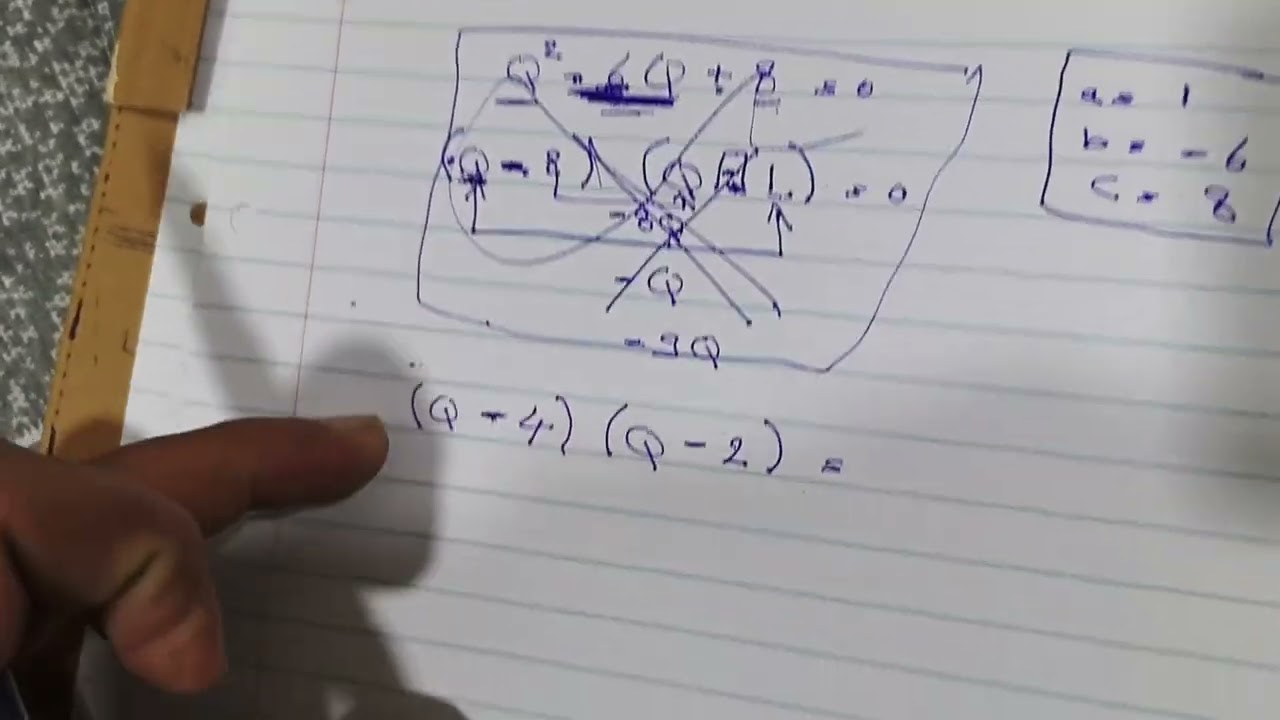 Q² - 6Q + 8 = 0
(Q - 8) (Q 1) = 0
- 8Q
- Q
- 9Q
(Q - 4) (Q - 2) =
a = 1
b = - 6
c = 8